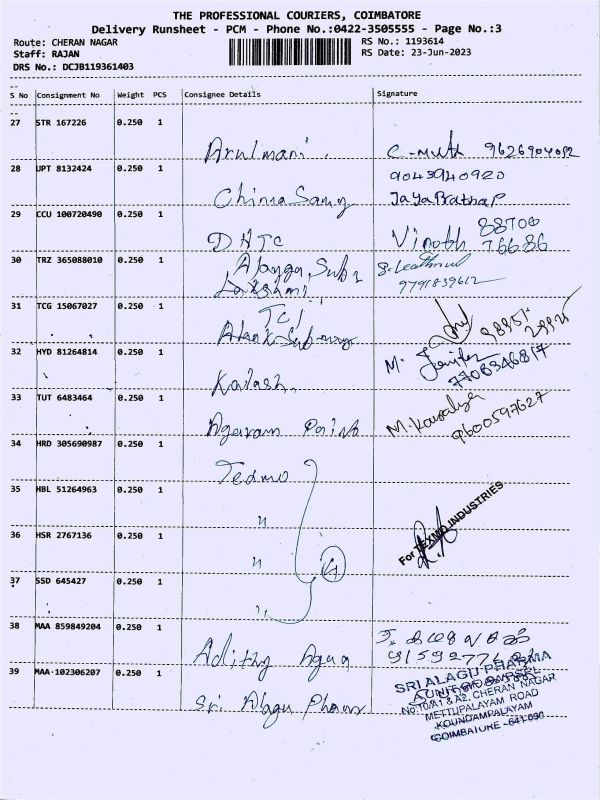 THE PROFESSIONAL COURIERS, COIMBATORE
Delivery Runsheet - PCM - Phone No.:0422-3505555 - Page No.:3
Route: CHERAN NAGAR
RS No.: 1193614
Staff: RAJAN
RS Date: 23-Jun-2023
DRS No.: DCJB119361403
S No Consignment No Weight PCS Consignee Details Signature
27 STR 167226 0.250 1
Arulmani. 9626904082
28 UPT 8132424 0.250 1
9043940920
ChinnaSamy JayaPrathaP
29 CCU 100720490 0.250 1
88708
DHTC Vinoth 76686
30 TRZ 365088010 0.250 1
Lakshmi 9791839612
31 TCG 15067027 0.250 1
TCI
32 HYD 81264814 0.250 1
M. Jenifer
Kailash. 7708346817
33 TUT 6483464 0.250 1
M. Kousalya
Agaram Paints 9600597627
34 HRD 305690987 0.250 1
Texmo
35 HBL 51264963 0.250 1
"
For TEXMO INDUSTRIES
36 HSR 2767136 0.250 1
" 4
37 SSD 645427 0.250 1
"
38 MAA 859849204 0.250 1
Adithy Agaa
39 MAA-102306207 0.250 1
Sri Alagu Pharma
SRI ALAGU PHARMA
No:10/A1 & A2, CHERAN NAGAR
METTUPALAYAM ROAD
KOUNDAMPALAYAM
COIMBATORE - 641 030